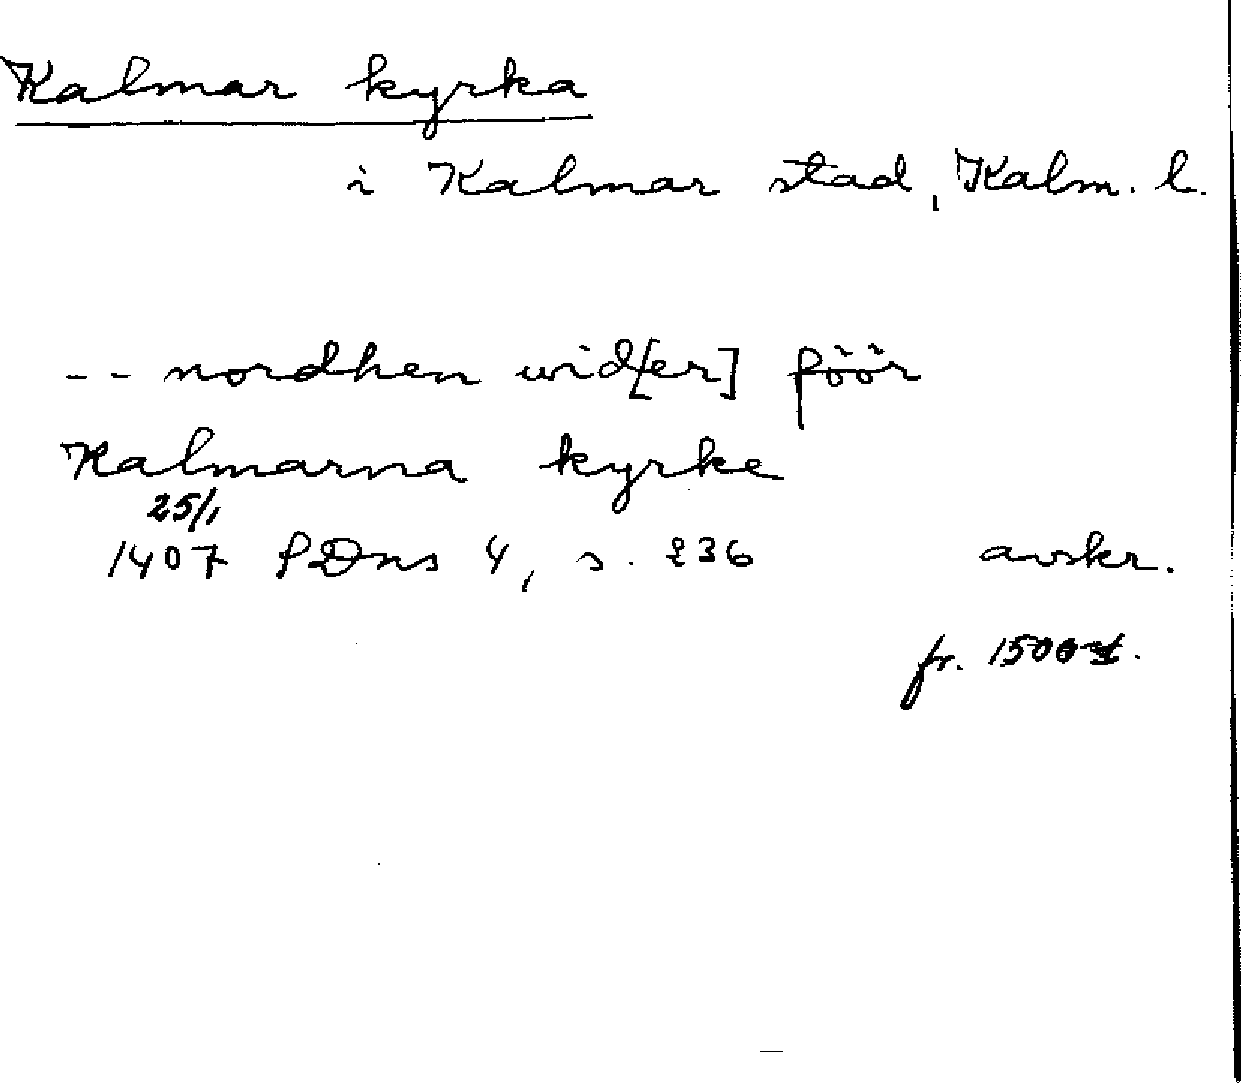 Kalmar kyrka
i Kalmar stad, Kalm. l.
-- nordhen wid[er]föör
Kalmarna kyrke
25/1
1407 SDns 4, s. 236 avskr.
fr. 1500-t.